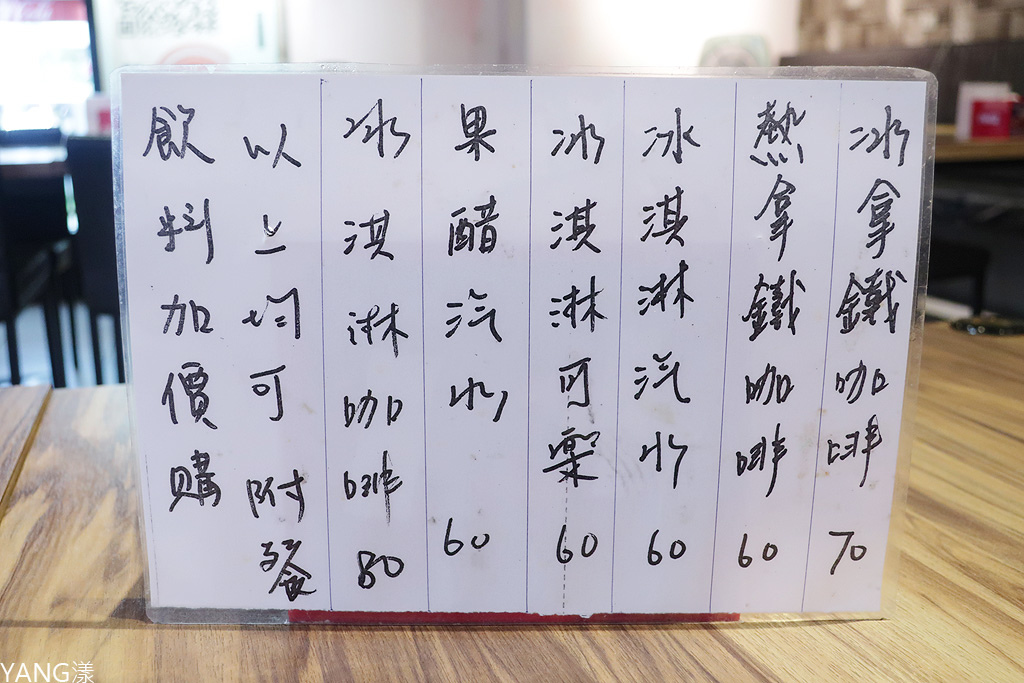 冰拿鐵咖啡 70
熱拿鐵咖啡 60
冰淇淋汽水 60
冰淇淋可樂 60
果醋汽水 60
冰淇淋咖啡 80
以上均可附餐
飲料加價購
YANG漾